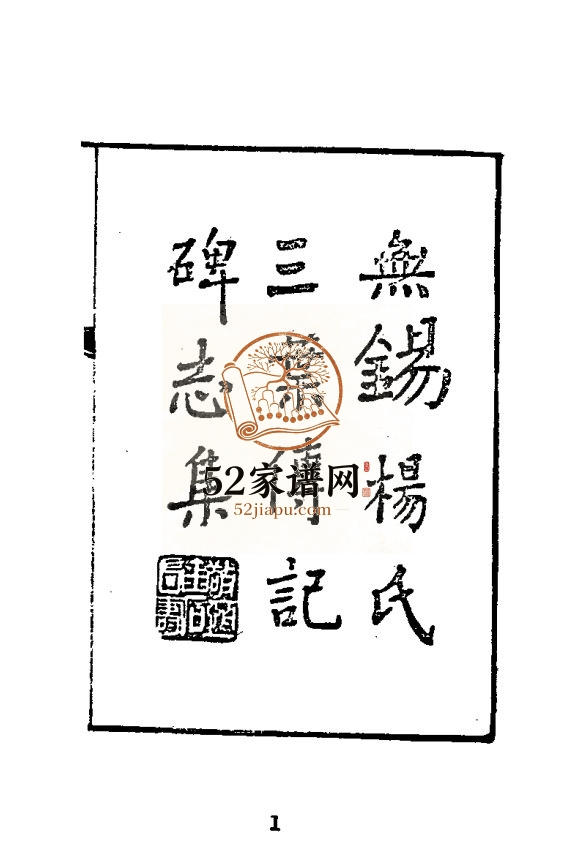 無錫楊氏
三葉傳記
碑志集
52家谱网
52jiapu.com
1